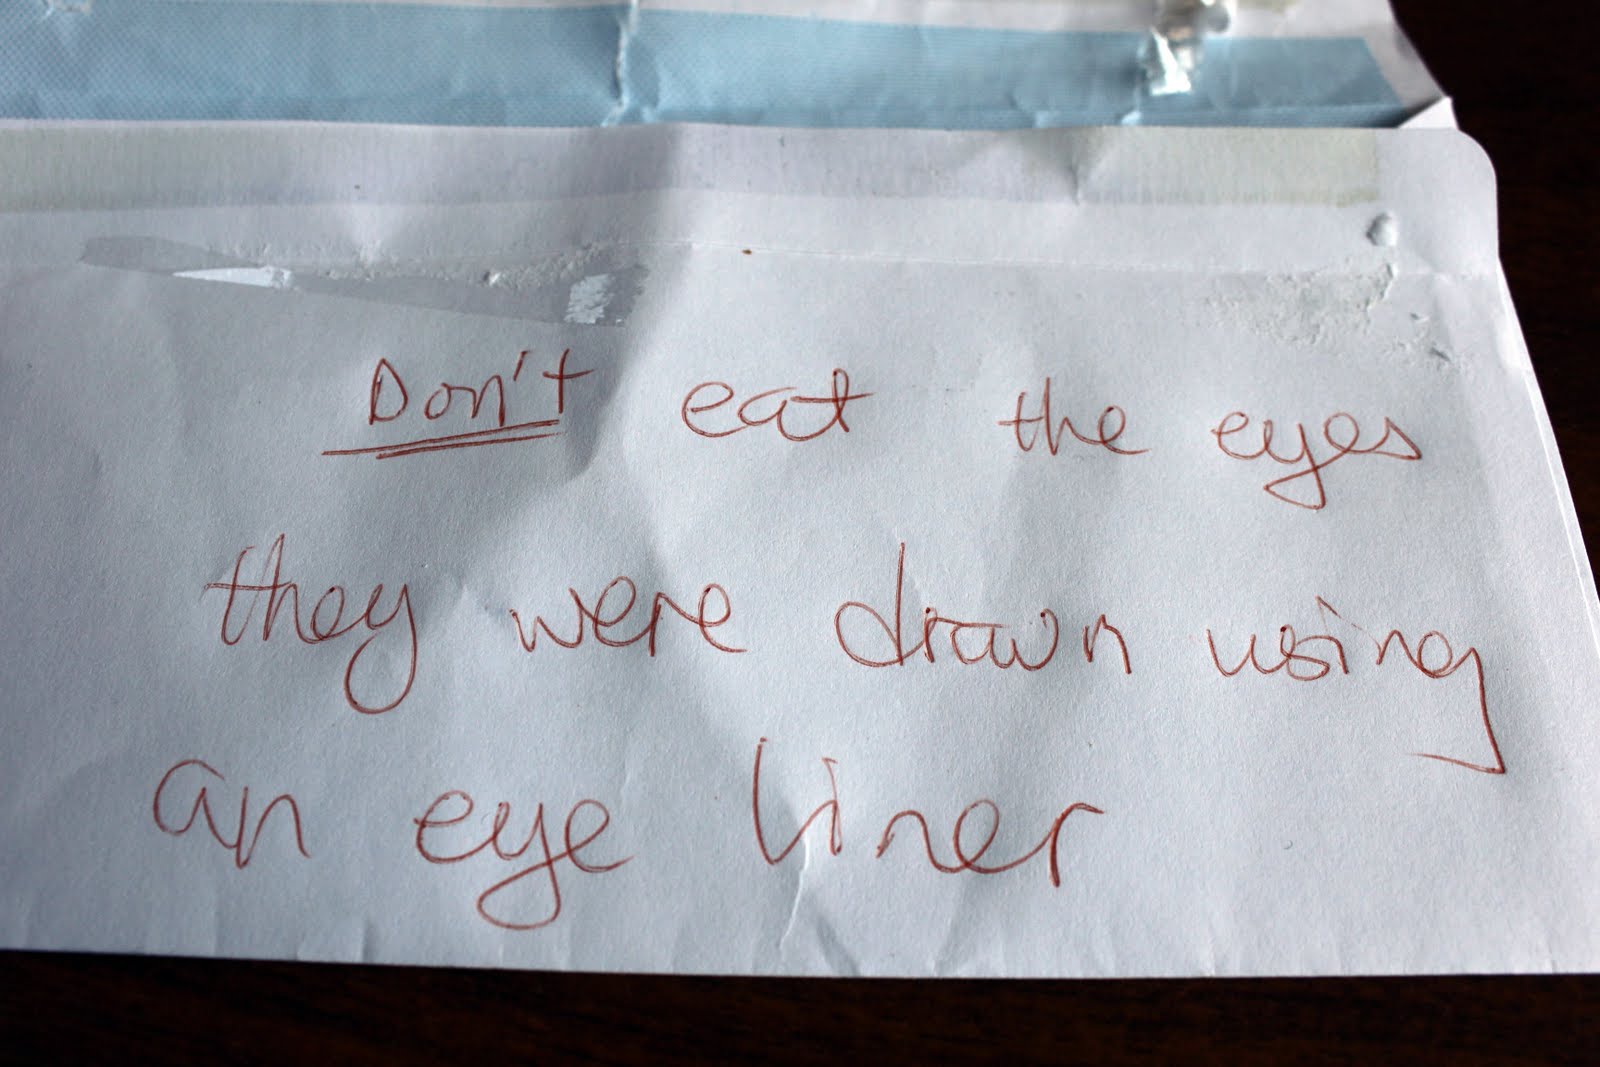 Don't eat the eyes
they were drawn using
an eye liner